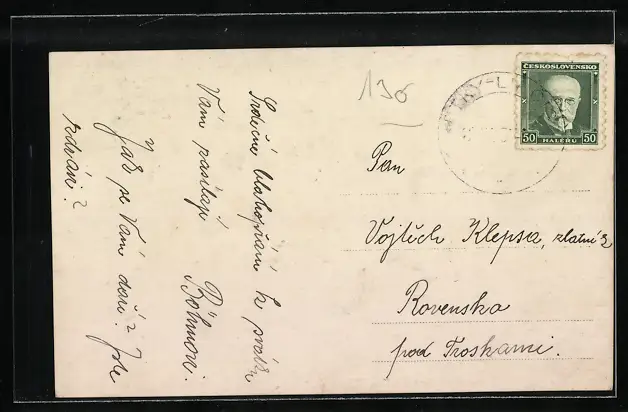 Srdečné blahopřání k svátku
Vám posílají
Böhmovi.
Jak se Vám daří? Jste
zdrávi?
130
ČESKOSLOVENSKO
50 HALÉŘŮ 50
Pan
Vojtěch Klepsa, zlatník
Rovensko
pod Troskami.